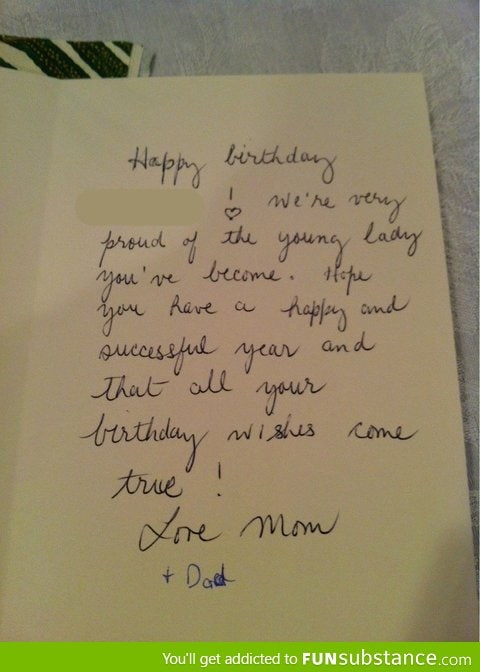 Happy birthday
! We're very
proud of the young lady
you've become. Hope
you have a happy and
successful year and
that all your
birthday wishes come
true !
Love Mom
+ Dad
You'll get addicted to FUNsubstance.com